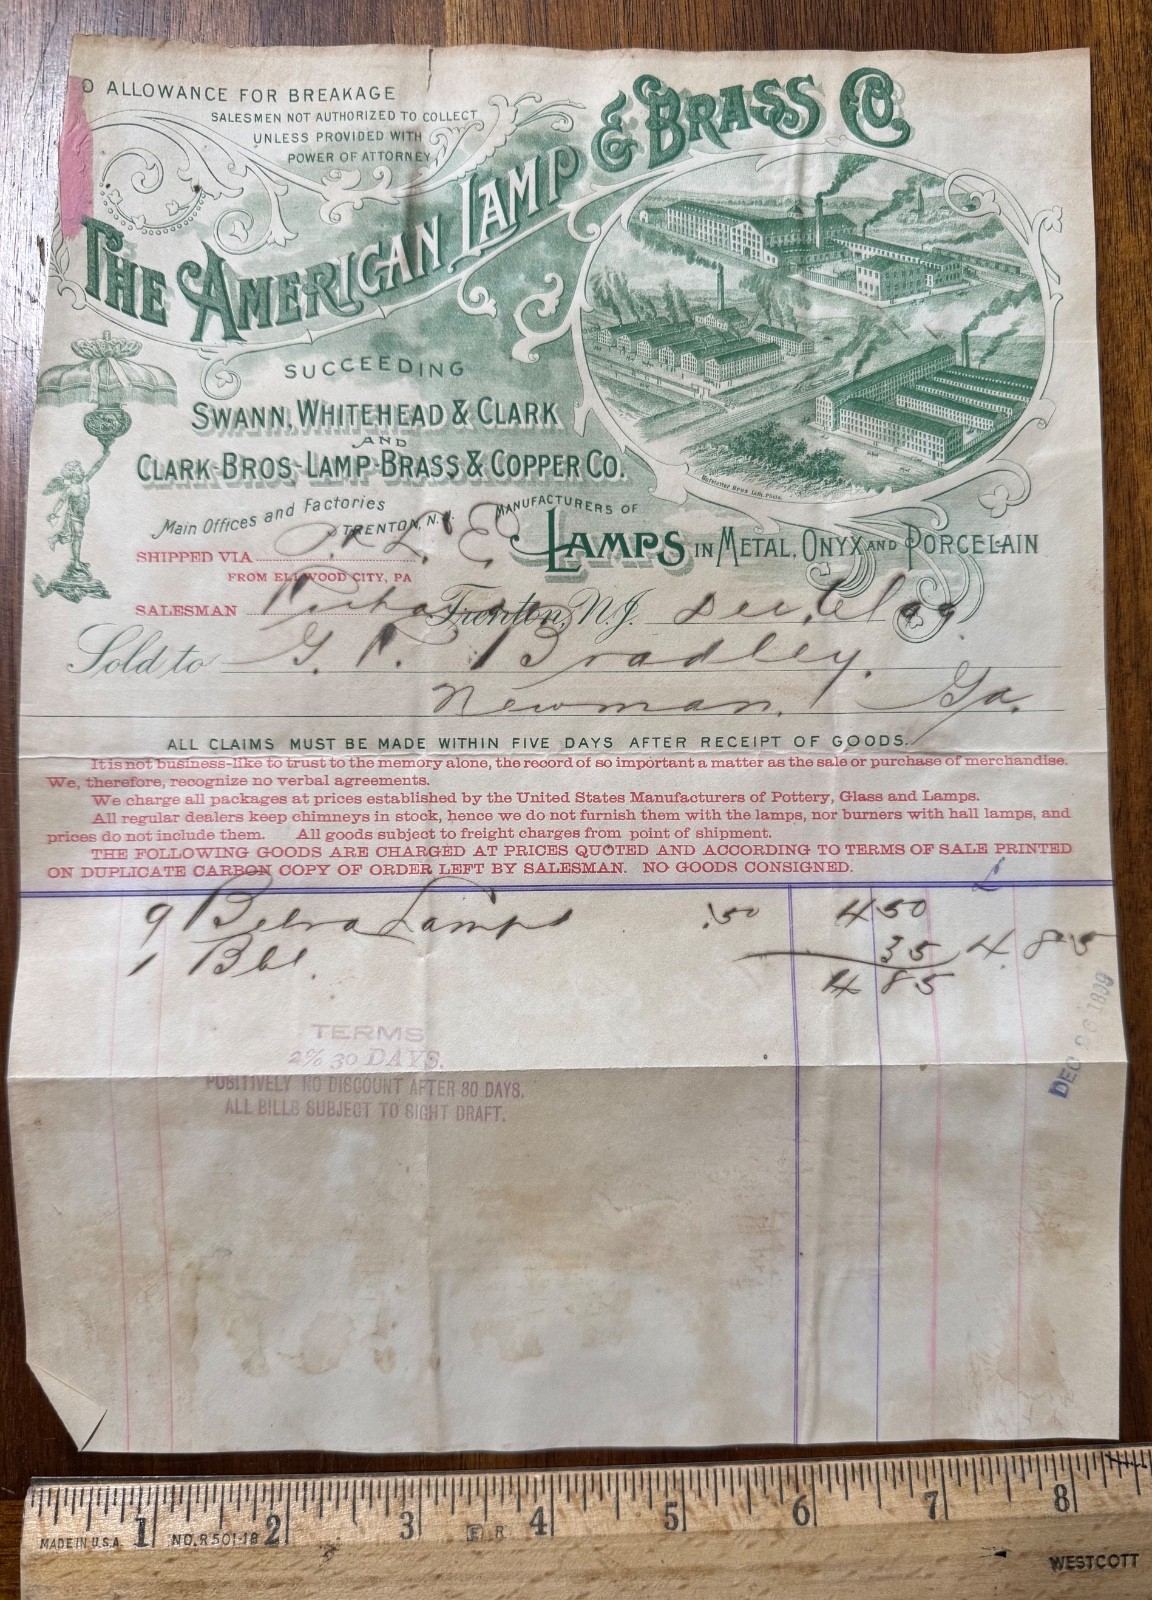 O ALLOWANCE FOR BREAKAGE
SALESMEN NOT AUTHORIZED TO COLLECT
UNLESS PROVIDED WITH
POWER OF ATTORNEY
THE AMERICAN LAMP & BRASS CO.
SUCCEEDING
SWANN, WHITEHEAD & CLARK
AND
CLARK-BROS-LAMP-BRASS & COPPER CO.
Main Offices and Factories
TRENTON, N.J.
MANUFACTURERS OF
LAMPS IN METAL, ONYX AND PORCELAIN
SHIPPED VIA
FROM ELLWOOD CITY, PA
SALESMAN
Trenton, N.J. Dec. 6/99.
Sold to G. P. Bradley.
Newman, Ga.
ALL CLAIMS MUST BE MADE WITHIN FIVE DAYS AFTER RECEIPT OF GOODS.
It is not business-like to trust to the memory alone, the record of so important a matter as the sale or purchase of merchandise.
We, therefore, recognize no verbal agreements.
We charge all packages at prices established by the United States Manufacturers of Pottery, Glass and Lamps.
All regular dealers keep chimneys in stock, hence we do not furnish them with the lamps, nor burners with hall lamps, and
prices do not include them. All goods subject to freight charges from point of shipment.
THE FOLLOWING GOODS ARE CHARGED AT PRICES QUOTED AND ACCORDING TO TERMS OF SALE PRINTED
ON DUPLICATE CARBON COPY OF ORDER LEFT BY SALESMAN. NO GOODS CONSIGNED.
9 Belva Lamps .50 4 50
1 Bbl. 35 4.85
4 85
DEC 26 1899
TERMS
2% 30 DAYS.
POSITIVELY NO DISCOUNT AFTER 30 DAYS.
ALL BILLS SUBJECT TO SIGHT DRAFT.
1 2 3 4 5 6 7 8
MADE IN U.S.A. NO. R501-18
WESTCOTT